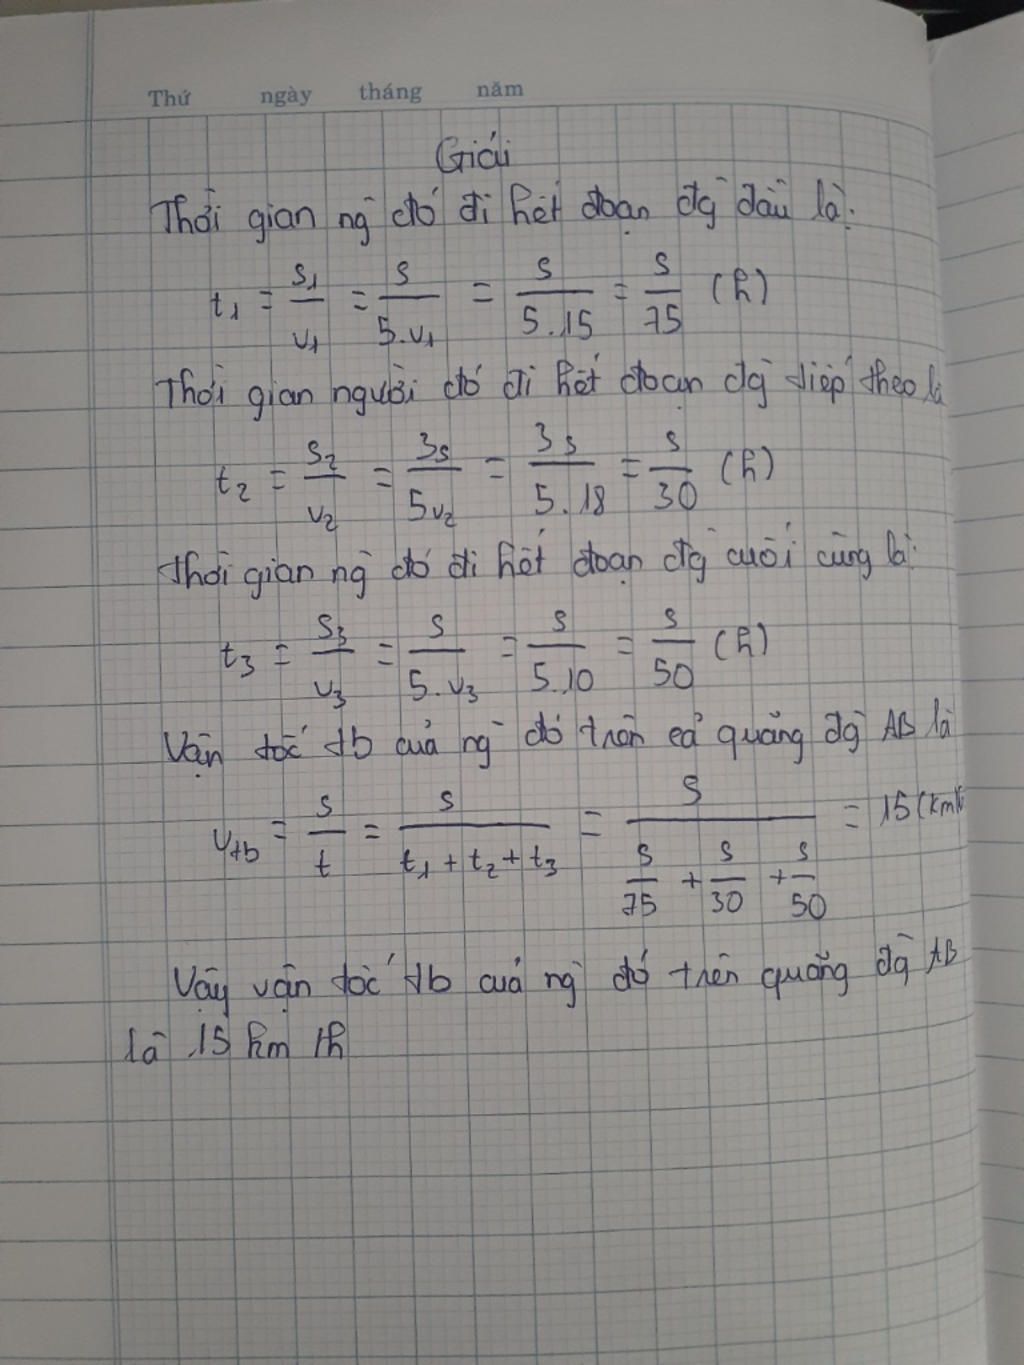 Thứ ngày tháng năm
Giải
Thời gian ng̀ đó đi hết đoạn đg̀ đầu là:
t1 = S1/v1 = S/5.v1 = S/5.15 = S/75 (h)
Thời gian người đó đi hết đoạn đg̀ tiếp theo là
t2 = S2/v2 = 3s/5v2 = 3s/5.18 = S/30 (h)
Thời gian ng̀ đó đi hết đoạn đg̀ cuối cùng là:
t3 = S3/v3 = S/5.v3 = S/5.10 = S/50 (h)
Vận tốc tb của ng̀ đó trên cả quãng đg̀ AB là
vtb = S/t = S/t1 + t2 + t3 = S/S/75 + S/30 + S/50 = 15 (km/h
Vậy vận tốc tb của ng̀ đó trên quãng đg̀ AB
là 15 km /h